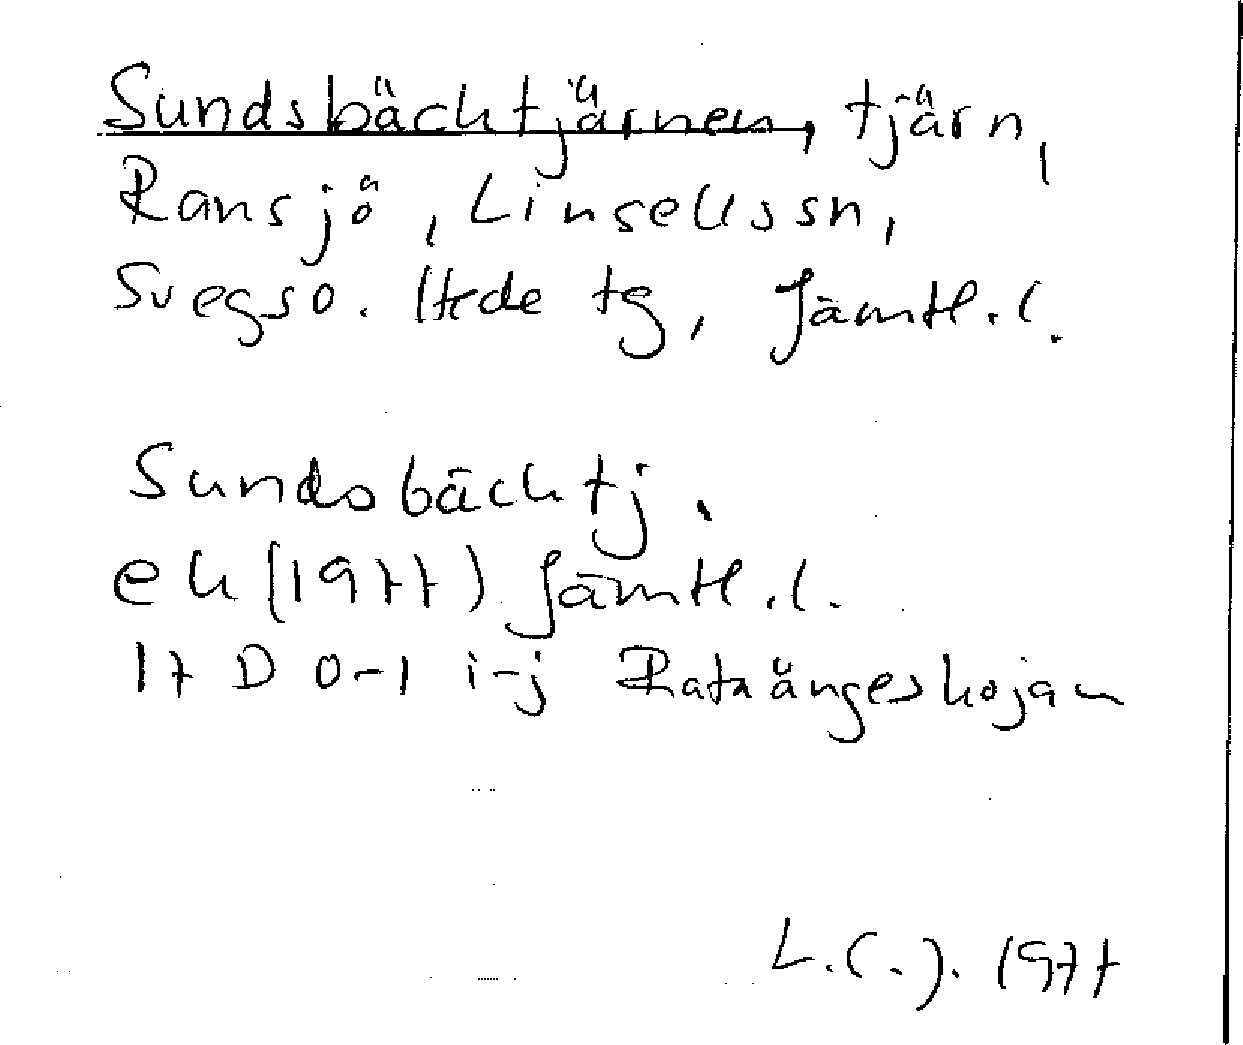 Sundsbäcktjärnen, tjärn,
Ransjö, Linsells sn,
Svegs o. Hede tg, Jämtl. l.
Sundsbäcktj.
ek (1977) Jämtl. l.
17 D 0-1 i-j Rataängeskojan
L.C.J. 1977